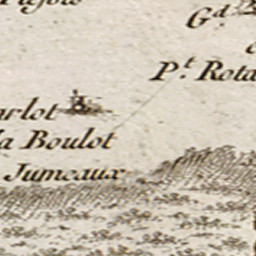 Gd
Pt. Rota
arlot
la Boulot
Jumeaux